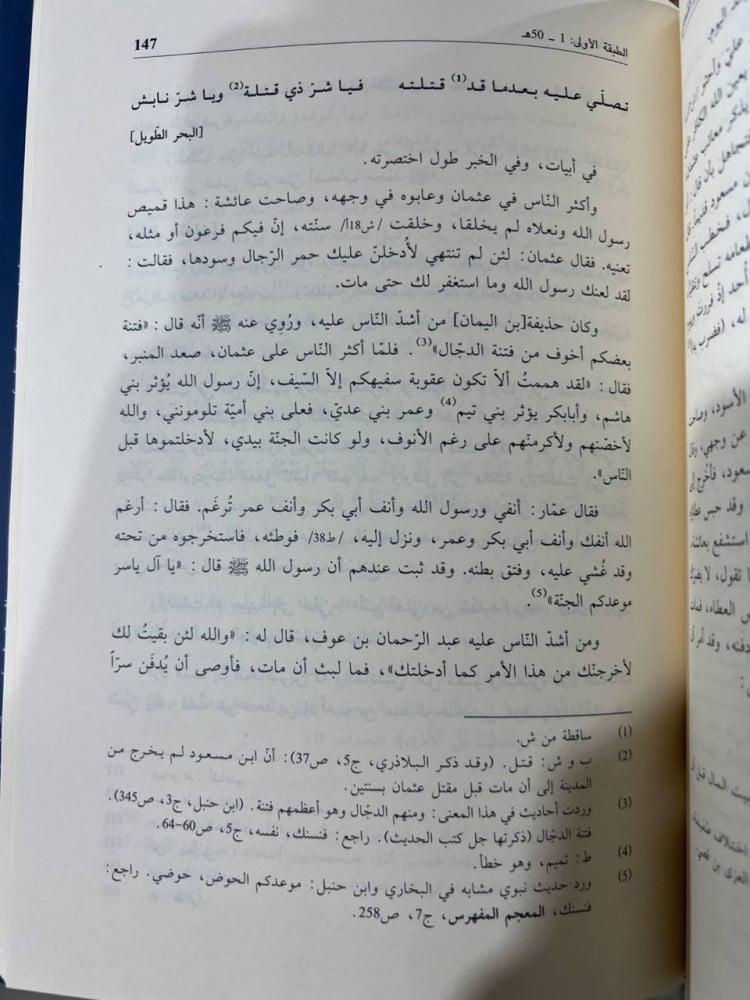 الطبقة الأولى: 1 ـ 50هـ
147
تصلّي عليه بعدما قد(1) قتلته فيا شرّ ذي قتلة(2) ويا شرّ نابش
[البحر الطّويل]
في أبيات، وفي الخبر طول اختصرته.
وأكثر النّاس في عثمان وعابوه في وجهه، وصاحت عائشة: هذا قميص
رسول الله ونعلاه لم يخلقا، وخلقت /ش18أ/ سنّته، إنّ فيكم فرعون أو مثله،
تعنيه. فقال عثمان: لئن لم تنتهي لأُدخلنّ عليك حمر الرّجال وسودها، فقالت:
لقد لعنك رسول الله وما استغفر لك حتى مات.
وكان حذيفة[بن اليمان] من أشدّ النّاس عليه، ورُوي عنه ﷺ أنّه قال: «فتنة
بعضكم أخوف من فتنة الدجّال»(3). فلمّا أكثر النّاس على عثمان، صعد المنبر،
فقال: «لقد هممتُ ألاّ تكون عقوبة سفيهكم إلاّ السّيف، إنّ رسول الله يُؤثر بني
هاشم، وأبابكر يؤثر بني تيم(4) وعمر بني عديّ، فعلى بني أميّة تلومونني، والله
لأخصّنهم ولأكرمنّهم على رغم الأنوف، ولو كانت الجنّة بيدي، لأدخلتموها قبل
النّاس».
فقال عمّار: أنفي ورسول الله وأنف أبي بكر وأنف عمر تُرغَم. فقال: أرغم
الله أنفك وأنف أبي بكر وعمر، ونزل إليه، /ط38/ فوطئه، فاستخرجوه من تحته
وقد غُشي عليه، وفتق بطنه. وقد ثبت عندهم أن رسول الله ﷺ قال: «يا آل ياسر
موعدكم الجنّة»(5).
ومن أشدّ النّاس عليه عبد الرّحمان بن عوف، قال له: «والله لئن بقيتُ لك
لأخرجنّك من هذا الأمر كما أدخلتك»، فما لبث أن مات، فأوصى أن يُدفَن سرّاً
(1) ساقطة من ش.
(2) ب و ش: قتل. (وقد ذكر البلاذري، ج5، ص37): أنّ ابن مسعود لم يخرج من
المدينة إلى أن مات قبل مقتل عثمان بسنتين.
(3) وردت أحاديث في هذا المعنى: ومنهم الدجّال وهو أعظمهم فتنة. (ابن حنبل، ج3، ص345).
فتنة الدجّال (ذكرتها جل كتب الحديث). راجع: فنسنك، نفسه، ج5، ص60-64.
(4) ط: تميم، وهو خطأ.
(5) ورد حديث نبوي مشابه في البخاري وابن حنبل: موعدكم الحوض، حوضي. راجع:
فنسنك، المعجم المفهرس، ج7، ص258.